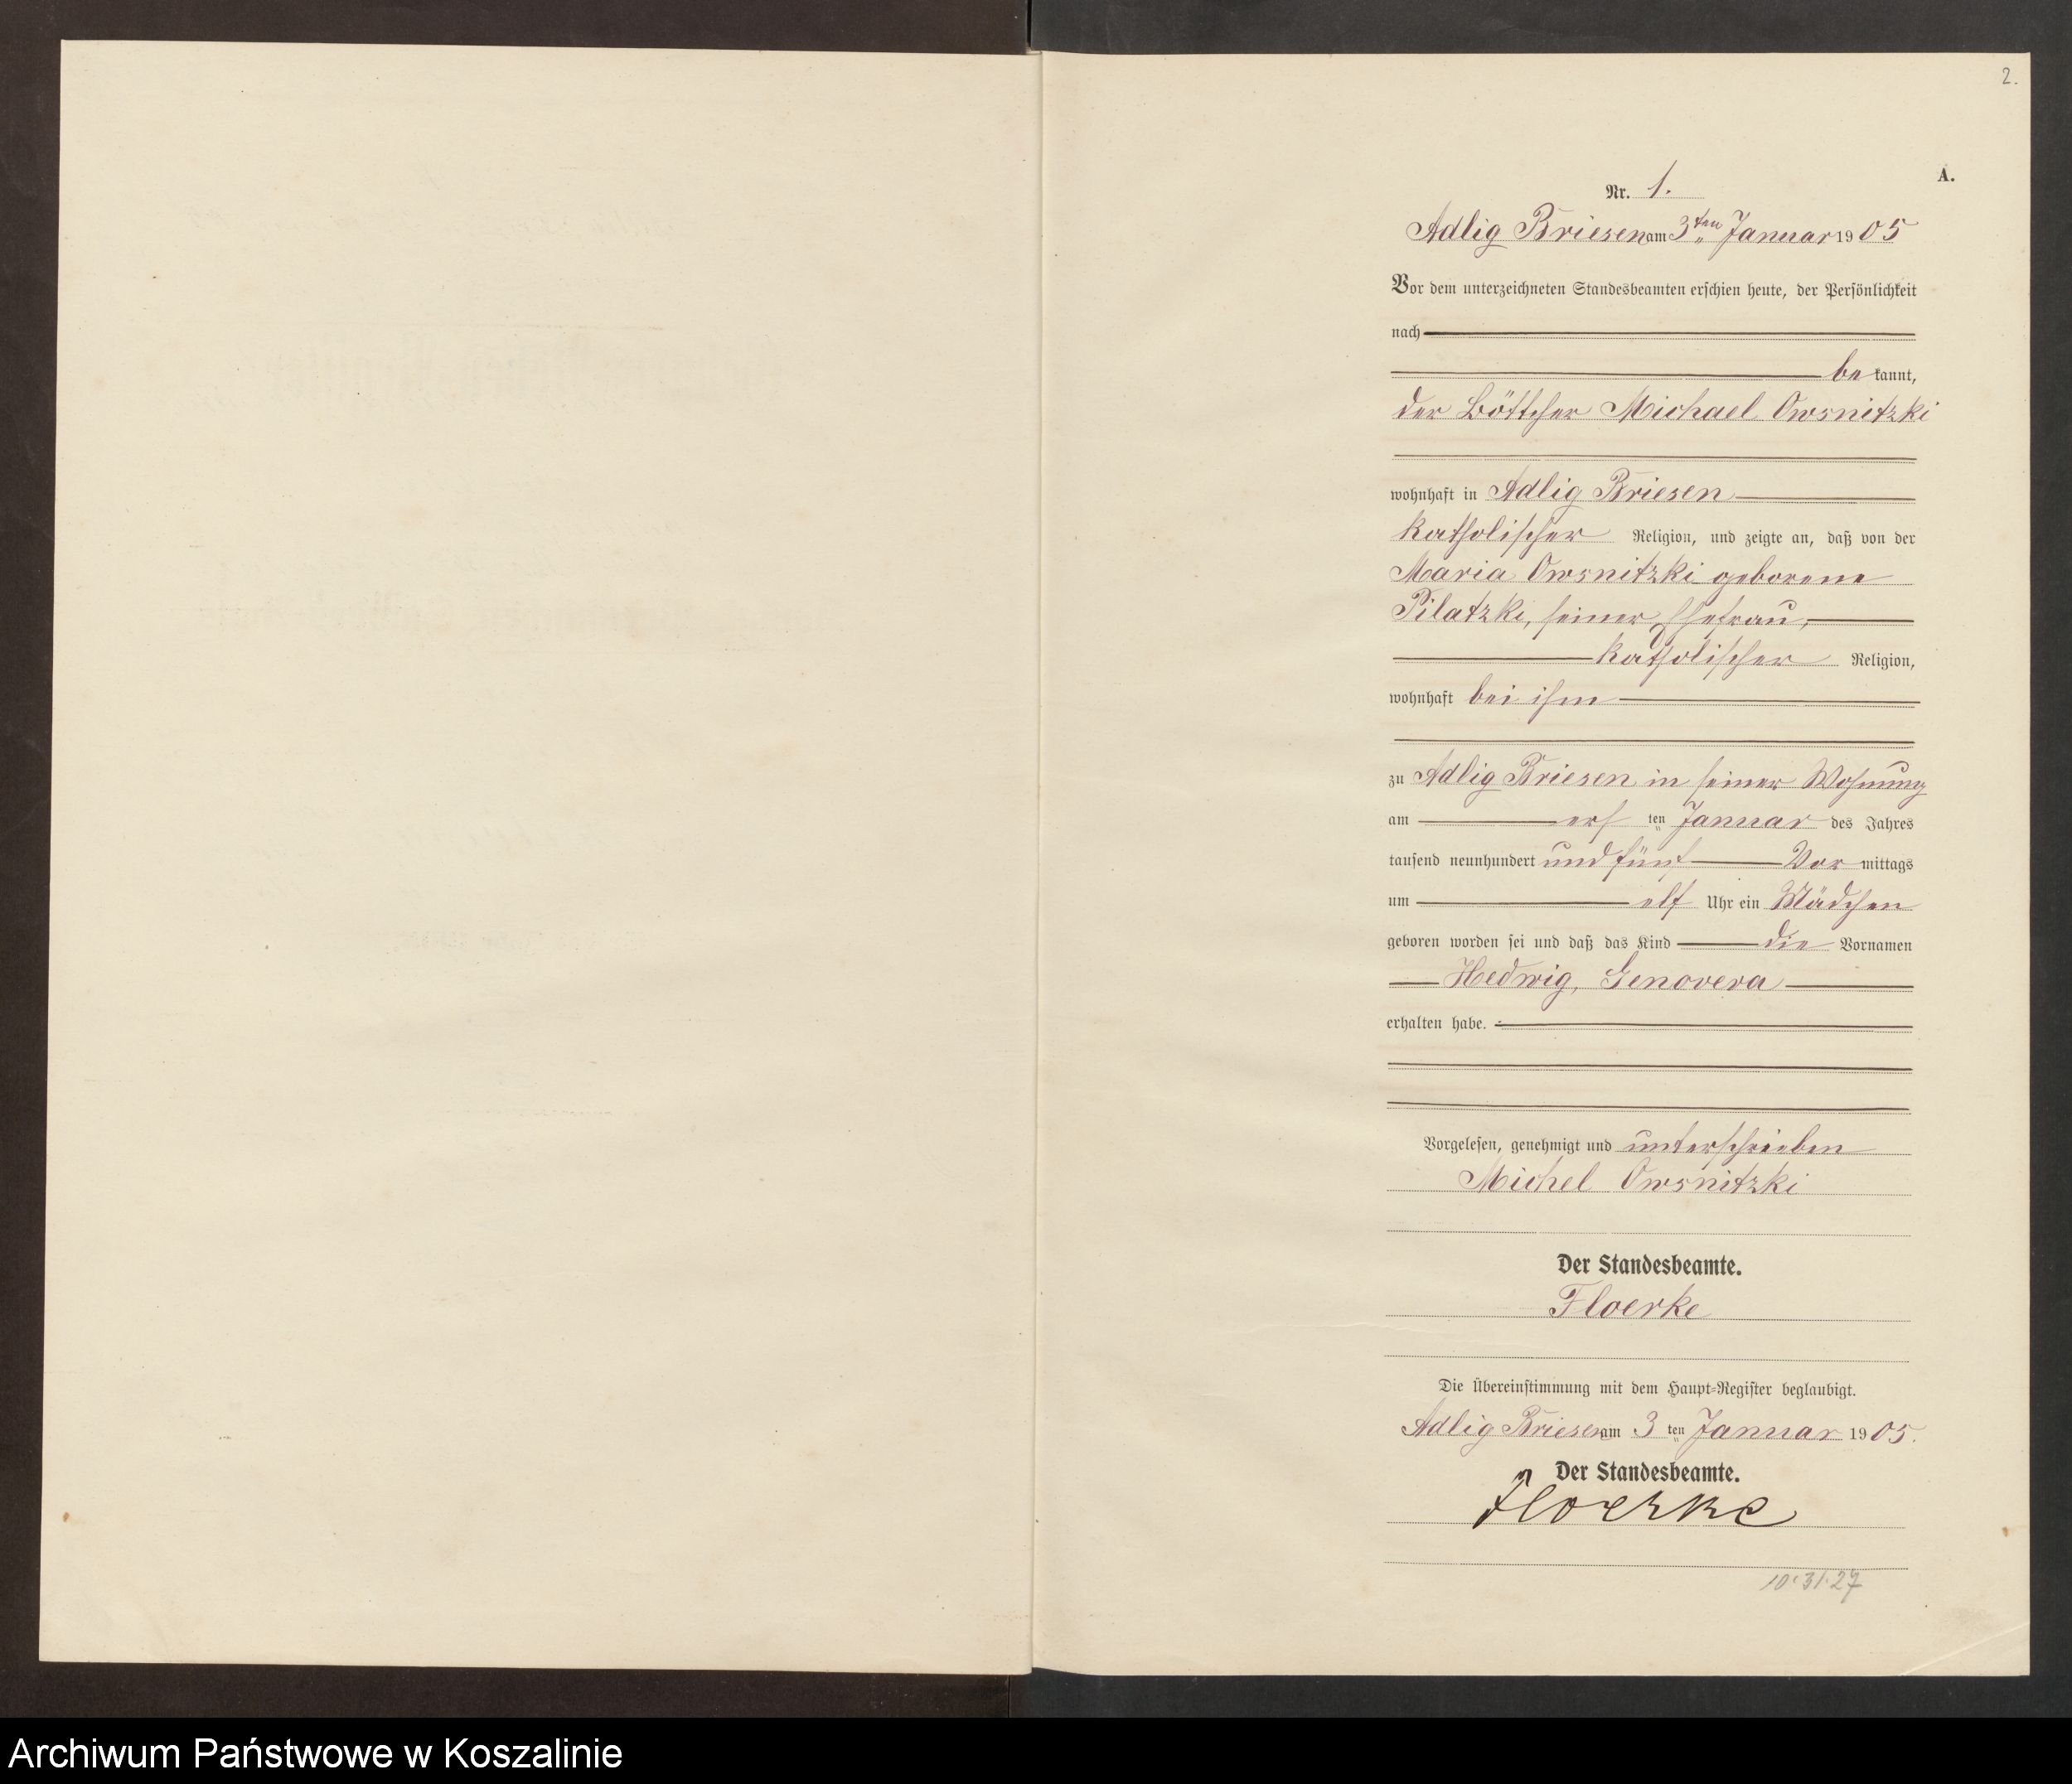 2.
A.
Nr. 1.
Adlig Briesen am 3ten Januar 1905
Vor dem unterzeichneten Standesbeamten erschien heute, der Persönlichkeit
nach
be kannt,
der Böttcher Michael Owsnitzki
wohnhaft in Adlig Briesen
katholischer Religion, und zeigte an, daß von der
Maria Owsnitzki geborene
Pilatzki, seiner Ehefrau,
katholischer Religion,
wohnhaft bei ihm
zu Adlig Briesen in seiner Wohnung
am ersten Januar des Jahres
tausend neunhundert und fünf Vor mittags
um elf Uhr ein Mädchen
geboren worden sei und daß das Kind die Vornamen
Hedwig, Genovera
erhalten habe.
Vorgelesen, genehmigt und unterschrieben
Michel Owsnitzki
Der Standesbeamte.
Floerke
Die Übereinstimmung mit dem Haupt-Register beglaubigt.
Adlig Briesen am 3 ten Januar 1905.
Der Standesbeamte.
Floerke
10·31·27
Archiwum Państwowe w Koszalinie